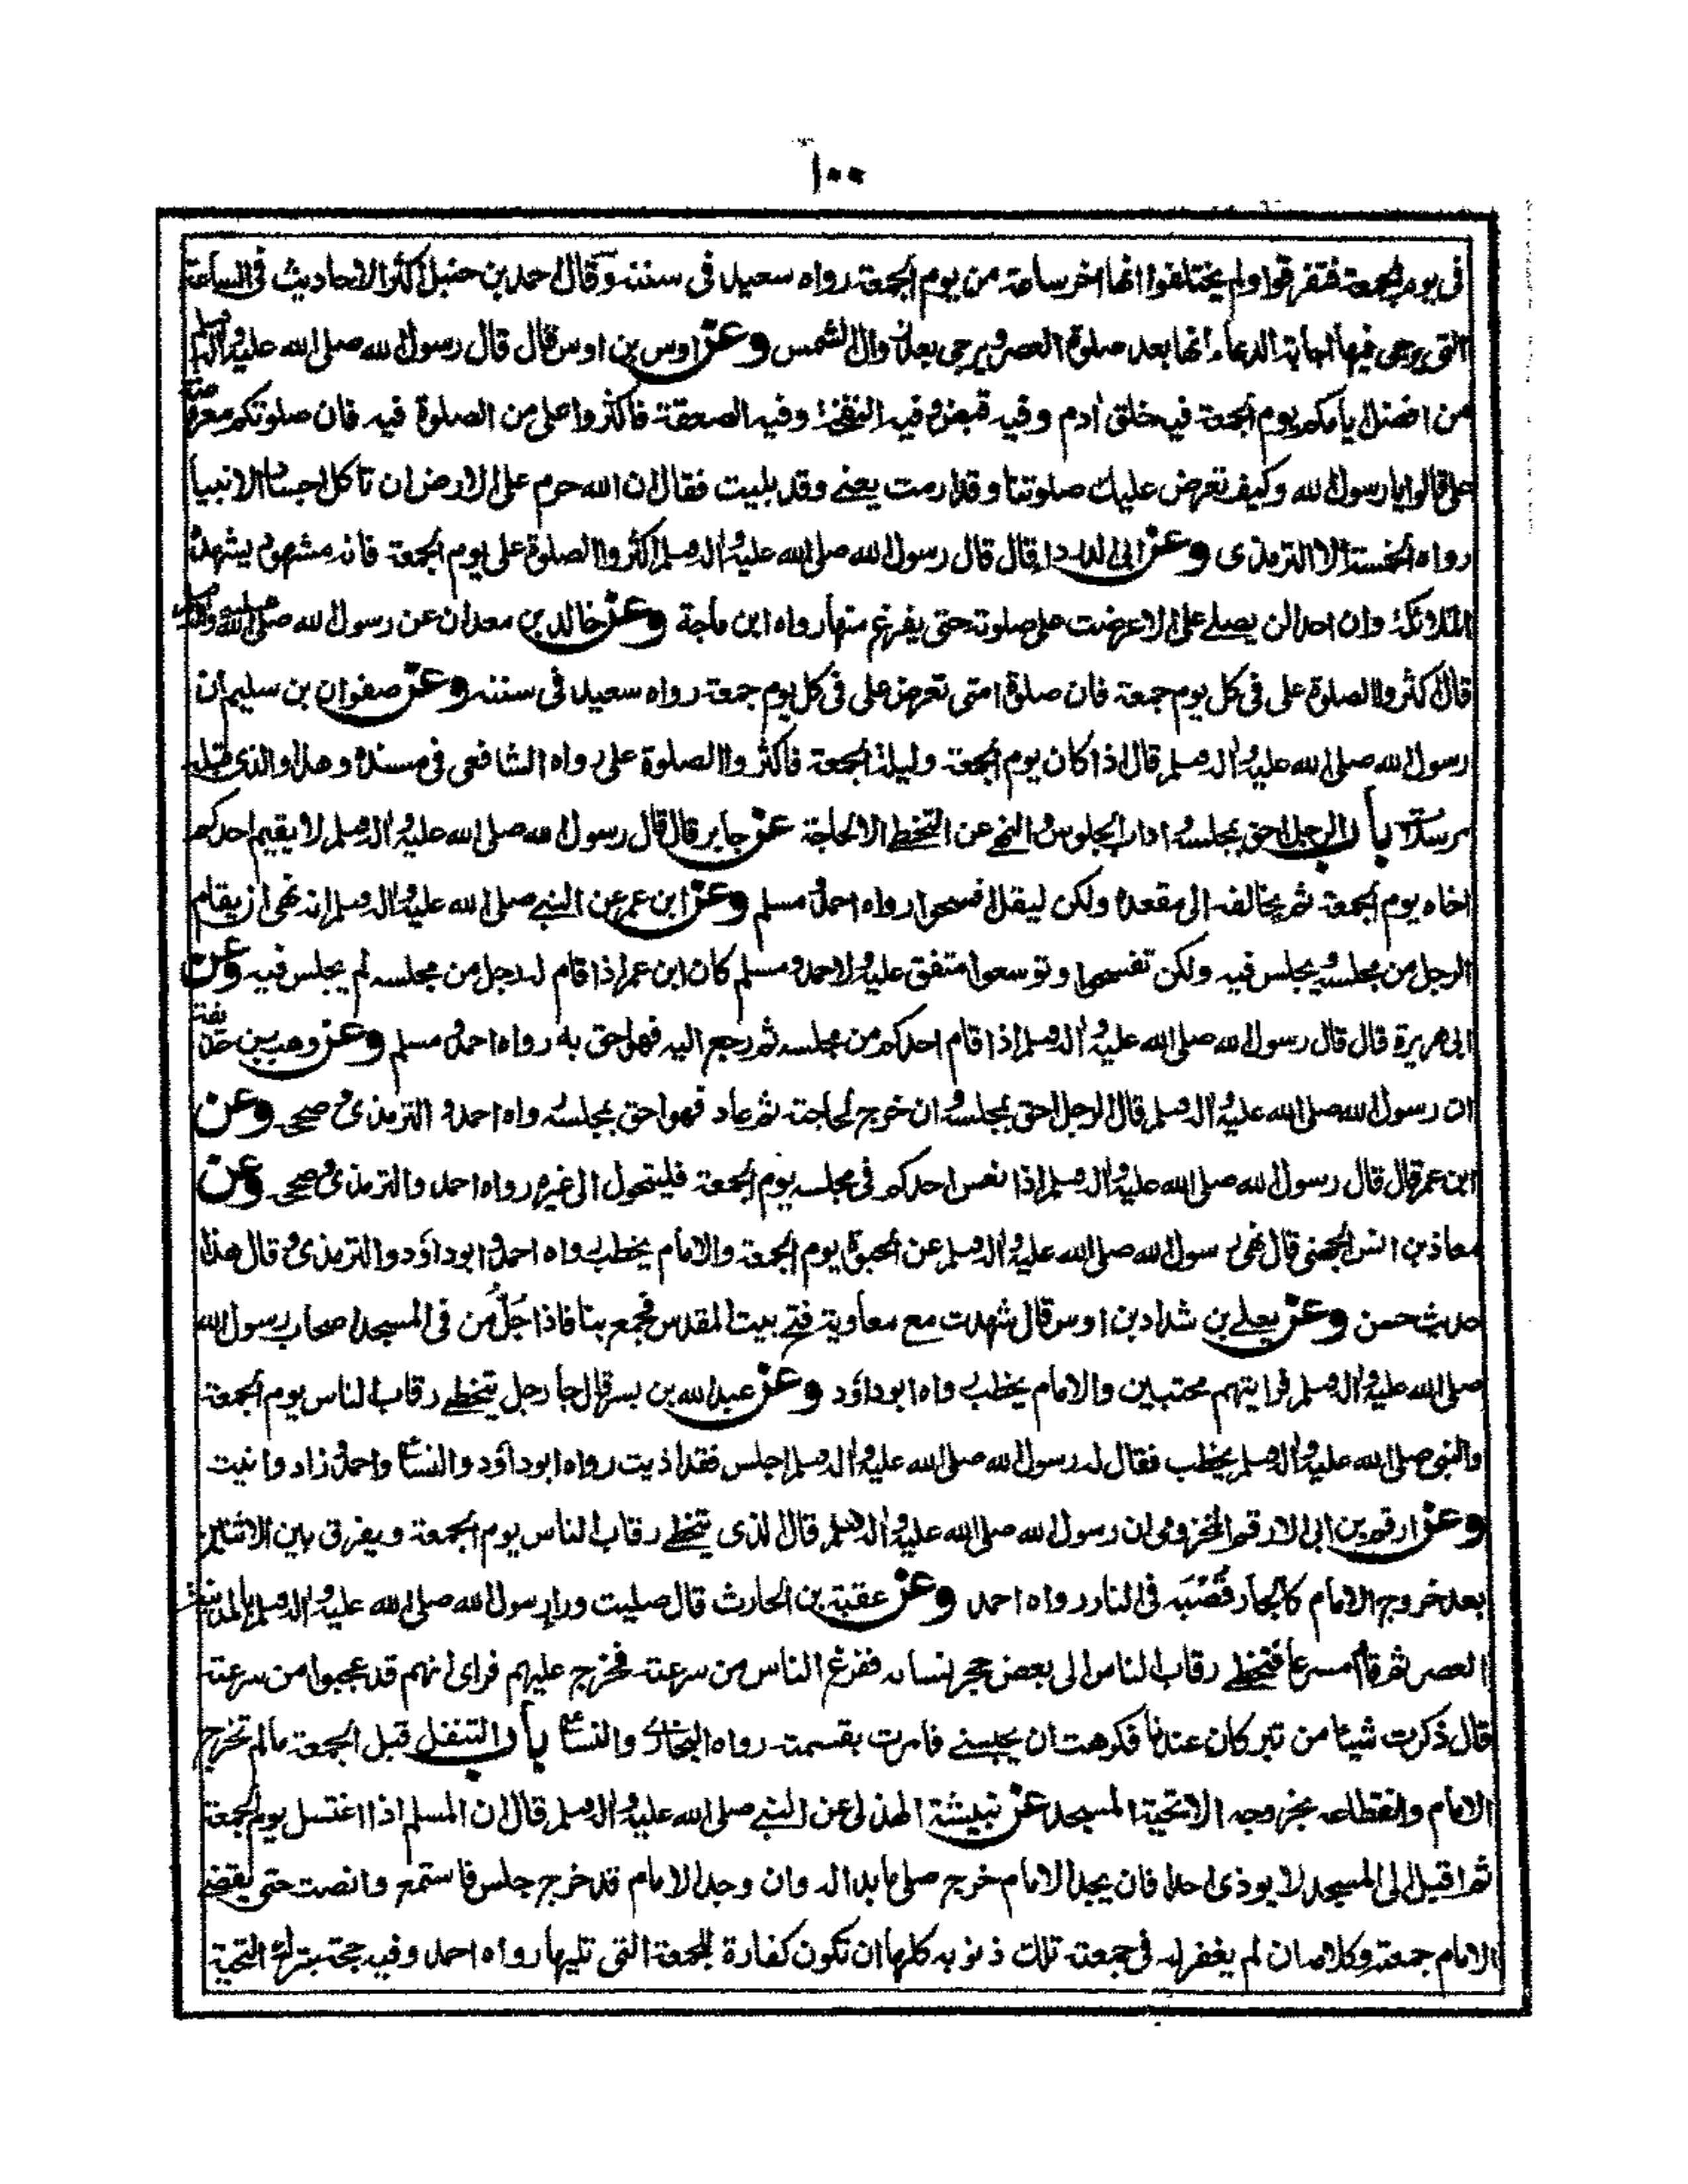 ١٠٠
فى يوم الجمعة فتفرقوا ولم يختلفوا انها اخر ساعة من يوم الجمعة رواه سعيد فى سننه وقال احمد بن حنبل اكثر الاحاديث فى الساعة
التى يرجى فيها اجابة الدعاء انها بعد صلوة العصر ويرجى بعد زوال الشمس وعن اوس بن اوس قال قال رسول الله صلى الله عليه واله وسلم
من افضل ايامكم يوم الجمعة فيه خلق ادم وفيه قبض وفيه النفخة وفيه الصعقة فاكثروا على من الصلوة فيه فان صلوتكم معروضة
على قالوا يا رسول الله وكيف تعرض عليك صلوتنا وقد ارمت يعنے وقد بليت فقال ان الله حرم على الارض ان تاكل اجساد الانبيا
رواه الخمسة الا الترمذى وعن ابى الدردا قال قال رسول الله صلى الله عليه واله وسلم اكثروا الصلوة على يوم الجمعة فانه مشهود يشهده
الملائكة وان احدا لن يصلے على الا عرضت على صلوته حتى يفرغ منها رواه ابن ماجة وعن خالد بن معدان عن رسول الله صلى الله عليه واله وسلم
قال اكثروا الصلوة على فى كل يوم جمعة فان صلوة امتى تعرض على فى كل يوم جمعة رواه سعيد فى سننه وعن صفوان بن سليم ان
رسول الله صلى الله عليه واله وسلم قال اذا كان يوم الجمعة وليلة الجمعة فاكثروا الصلوة على رواه الشافعى فى مسنده وهذا والذى قبله
مرسلان باب الرجل احق بمجلسه واداب الجلوس والنهے عن التخطے الا لحاجة عن جابر قال قال رسول الله صلى الله عليه واله وسلم لا يقيم احدكم
اخاه يوم الجمعة ثم يخالفه الى مقعده ولكن ليقل افسحوا رواه احمد ومسلم وعن ابن عمر عن النبے صلى الله عليه واله وسلم انه نهى ان يقام
الرجل من مجلسه ويجلس فيه ولكن تفسحوا وتوسعوا متفق عليه ولاحمد ومسلم كان ابن عمر اذا قام له رجل من مجلسه لم يجلس فيه وعن
ابى هريرة قال قال رسول الله صلى الله عليه واله وسلم اذا قام احدكم من مجلسه ثم رجع اليه فهو احق به رواه احمد ومسلم وعن وهب بن حذيفة
ان رسول الله صلى الله عليه واله وسلم قال الرجل احق بمجلسه وان خرج لحاجته ثم عاد فهو احق بمجلسه رواه احمد والترمذى وصححه وعن
ابن عمر قال قال رسول الله صلى الله عليه واله وسلم اذا نعس احدكم فى مجلسه يوم الجمعة فليتحول الى غيره رواه احمد والترمذى وصححه وعن
معاذ بن انس الجهنى قال نهى رسول الله صلى الله عليه واله وسلم عن الحبوة يوم الجمعة والامام يخطب رواه احمد وابو داؤد والترمذى وقال هذا
حديث حسن وعن يعلے بن شداد بن اوس قال شهدت مع معاوية فتح بيت المقدس فجمع بنا فاذا جُلّ من فى المسجد اصحاب رسول الله
صلى الله عليه واله وسلم فرايتهم محتبين والامام يخطب رواه ابو داؤد وعن عبد الله بن بسر قال جا رجل يتخطے رقاب الناس يوم الجمعة
والنبى صلى الله عليه واله وسلم يخطب فقال له رسول الله صلى الله عليه واله وسلم اجلس فقد اذيت رواه ابو داؤد والنسائى واحمد وزاد وانيت
وعن ارقم بن ابى الارقم المخزومى ان رسول الله صلى الله عليه واله وسلم قال الذى يتخطے رقاب الناس يوم الجمعة ويفرق بين الاثنين
بعد خروج الامام كالجار قُصْبَه فى النار رواه احمد وعن عقبة بن الحارث قال صليت ورا رسول الله صلى الله عليه واله وسلم بالمدينة
العصر ثم قام مسرعا فتخطے رقاب الناس الى بعض حجر نسائه ففزع الناس من سرعته فخرج عليهم فراى انهم قد عجبوا من سرعته
قال ذكرت شيئا من تبر كان عندنا فكرهت ان يحبسنے فامرت بقسمته رواه البخارى والنسائى باب التنفل قبل الجمعة مالم تخرج
الامام وانقطاعه بخروجه الا تحية المسجد عن نبيشة الهذلى عن النبے صلى الله عليه واله وسلم قال ان المسلم اذا اغتسل يوم الجمعة
ثم اقبل الى المسجد لا يوذى احدا فان يجد الامام خرج صلى ما بدا له وان وجد الامام قد خرج جلس فاستمع وانصت حتى يقضے
الامام جمعته وكلامه ان لم يغفر له فى جمعته تلك ذنوبه كلها ان تكون كفارة للجمعة التى تليها رواه احمد وفيه حجة بترك التحية